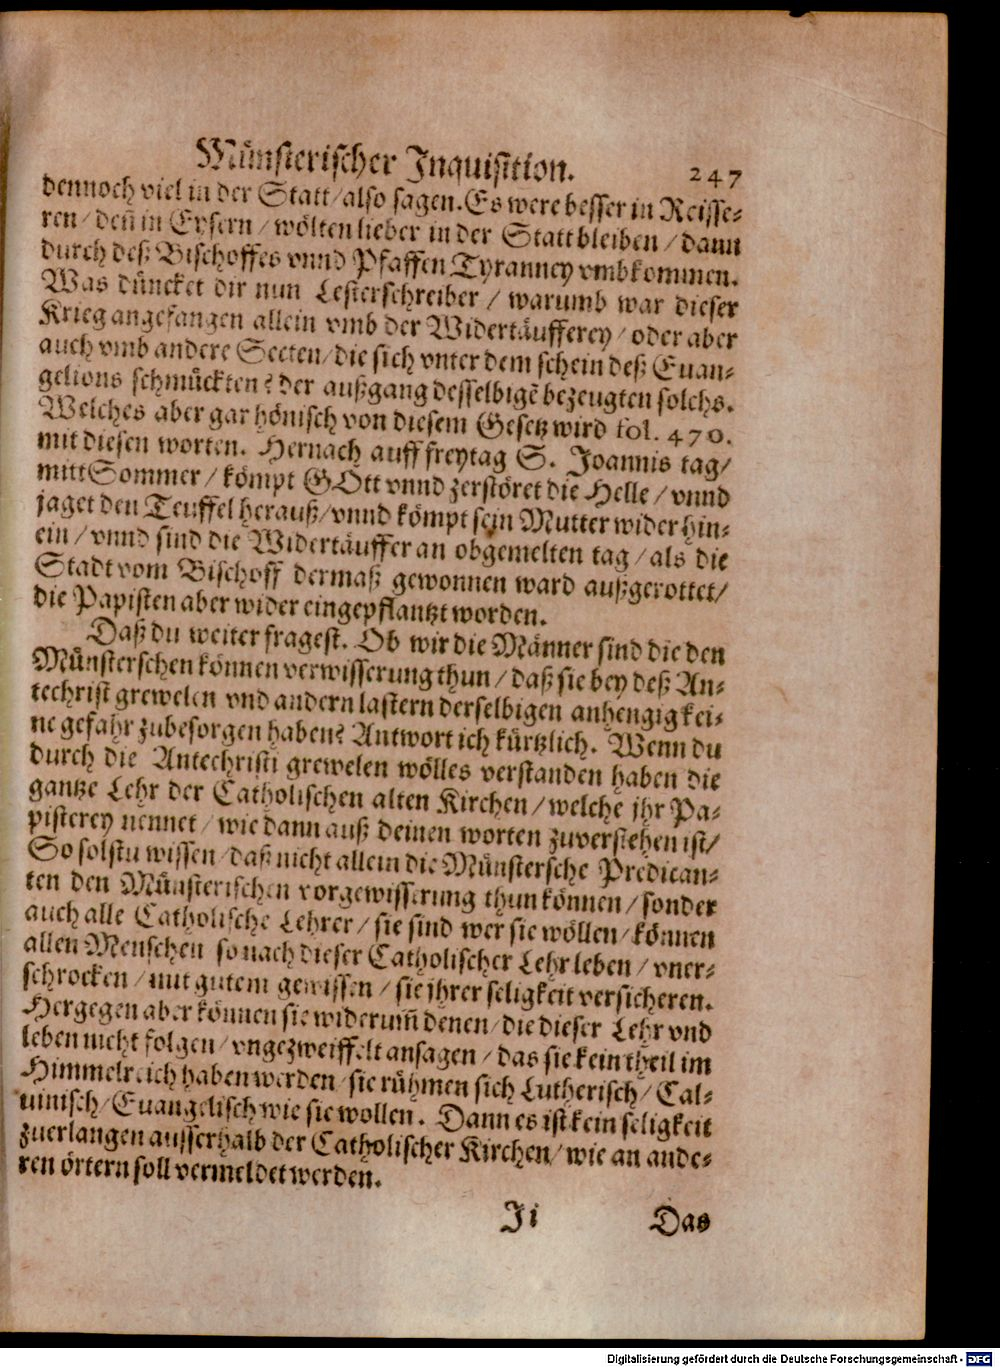 Münsterischer Inquisition. 247
dennoch viel in der Statt/also sagen. Es were besser in Reisse-
ren/ deñ in Eysern/ wölten lieber in der Statt bleiben/ dann
durch deß Bischoffes vnnd Pfaffen Tyranney vmbkommen.
Was düncket dir nun Lesterschreiber/ warumb war dieser
Krieg angefangen allein vmb der Widertäufferey/ oder aber
auch vmb andere Secten/die sich vnter dem schein deß Euan-
gelions schmückten? der außgang desselbigẽ bezeugten solchs.
Welches aber gar hönisch von diesem Gesetz wird fol. 470.
mit diesen worten. Hernach auff freytag S. Joannis tag/
mitt Sommer/ kömpt GOtt vnnd zerstöret die Helle/ vnnd
jaget den Teuffel herauß/vnnd kömpt sein Mutter wider hin-
ein/ vnnd sind die Widertäuffer an obgemelten tag/ als die
Stadt vom Bischoff dermaß gewonnen ward außgerottet/
die Papisten aber wider eingepflantzt worden.
Daß du weiter fragest. Ob wir die Männer sind die den
Münsterschen können verwisserung thun/ daß sie bey deß An-
techrist grewelen vnd andern lastern derselbigen anhengig kei-
ne gefahr zubesorgen haben? Antwort ich kürtzlich. Wenn du
durch die Antechristi grewelen wölles verstanden haben die
gantze Lehr der Catholischen alten Kirchen/ welche jhr Pa-
pisterey nennet/ wie dann auß deinen worten zuverstehen ist/
So solstu wissen/ daß nicht allein die Münstersche Predican-
ten den Münsterischen vorgewisserung thun können/ sonder
auch alle Catholische Lehrer/ sie sind wer sie wöllen/ können
allen Menschen so nach dieser Catholischer Lehr leben/ vner-
schrocken/ mit gutem gewissen/ sie jhrer seligkeit versicheren.
Hergegen aber können sie widerum̃ denen/ die dieser Lehr vnd
leben nicht folgen/ vngezweiffelt ansagen/ das sie kein theil im
Himmelreich haben werden/ sie rühmen sich Lutherisch/ Cal-
uinisch/ Euangelisch wie sie wollen. Dann es ist kein seligkeit
zuerlangen ausserhalb der Catholischer Kirchen/ wie an ande-
ren örtern soll vermeldet werden.
Ii Das
Digitalisierung gefördert durch die Deutsche Forschungsgemeinschaft - DFG